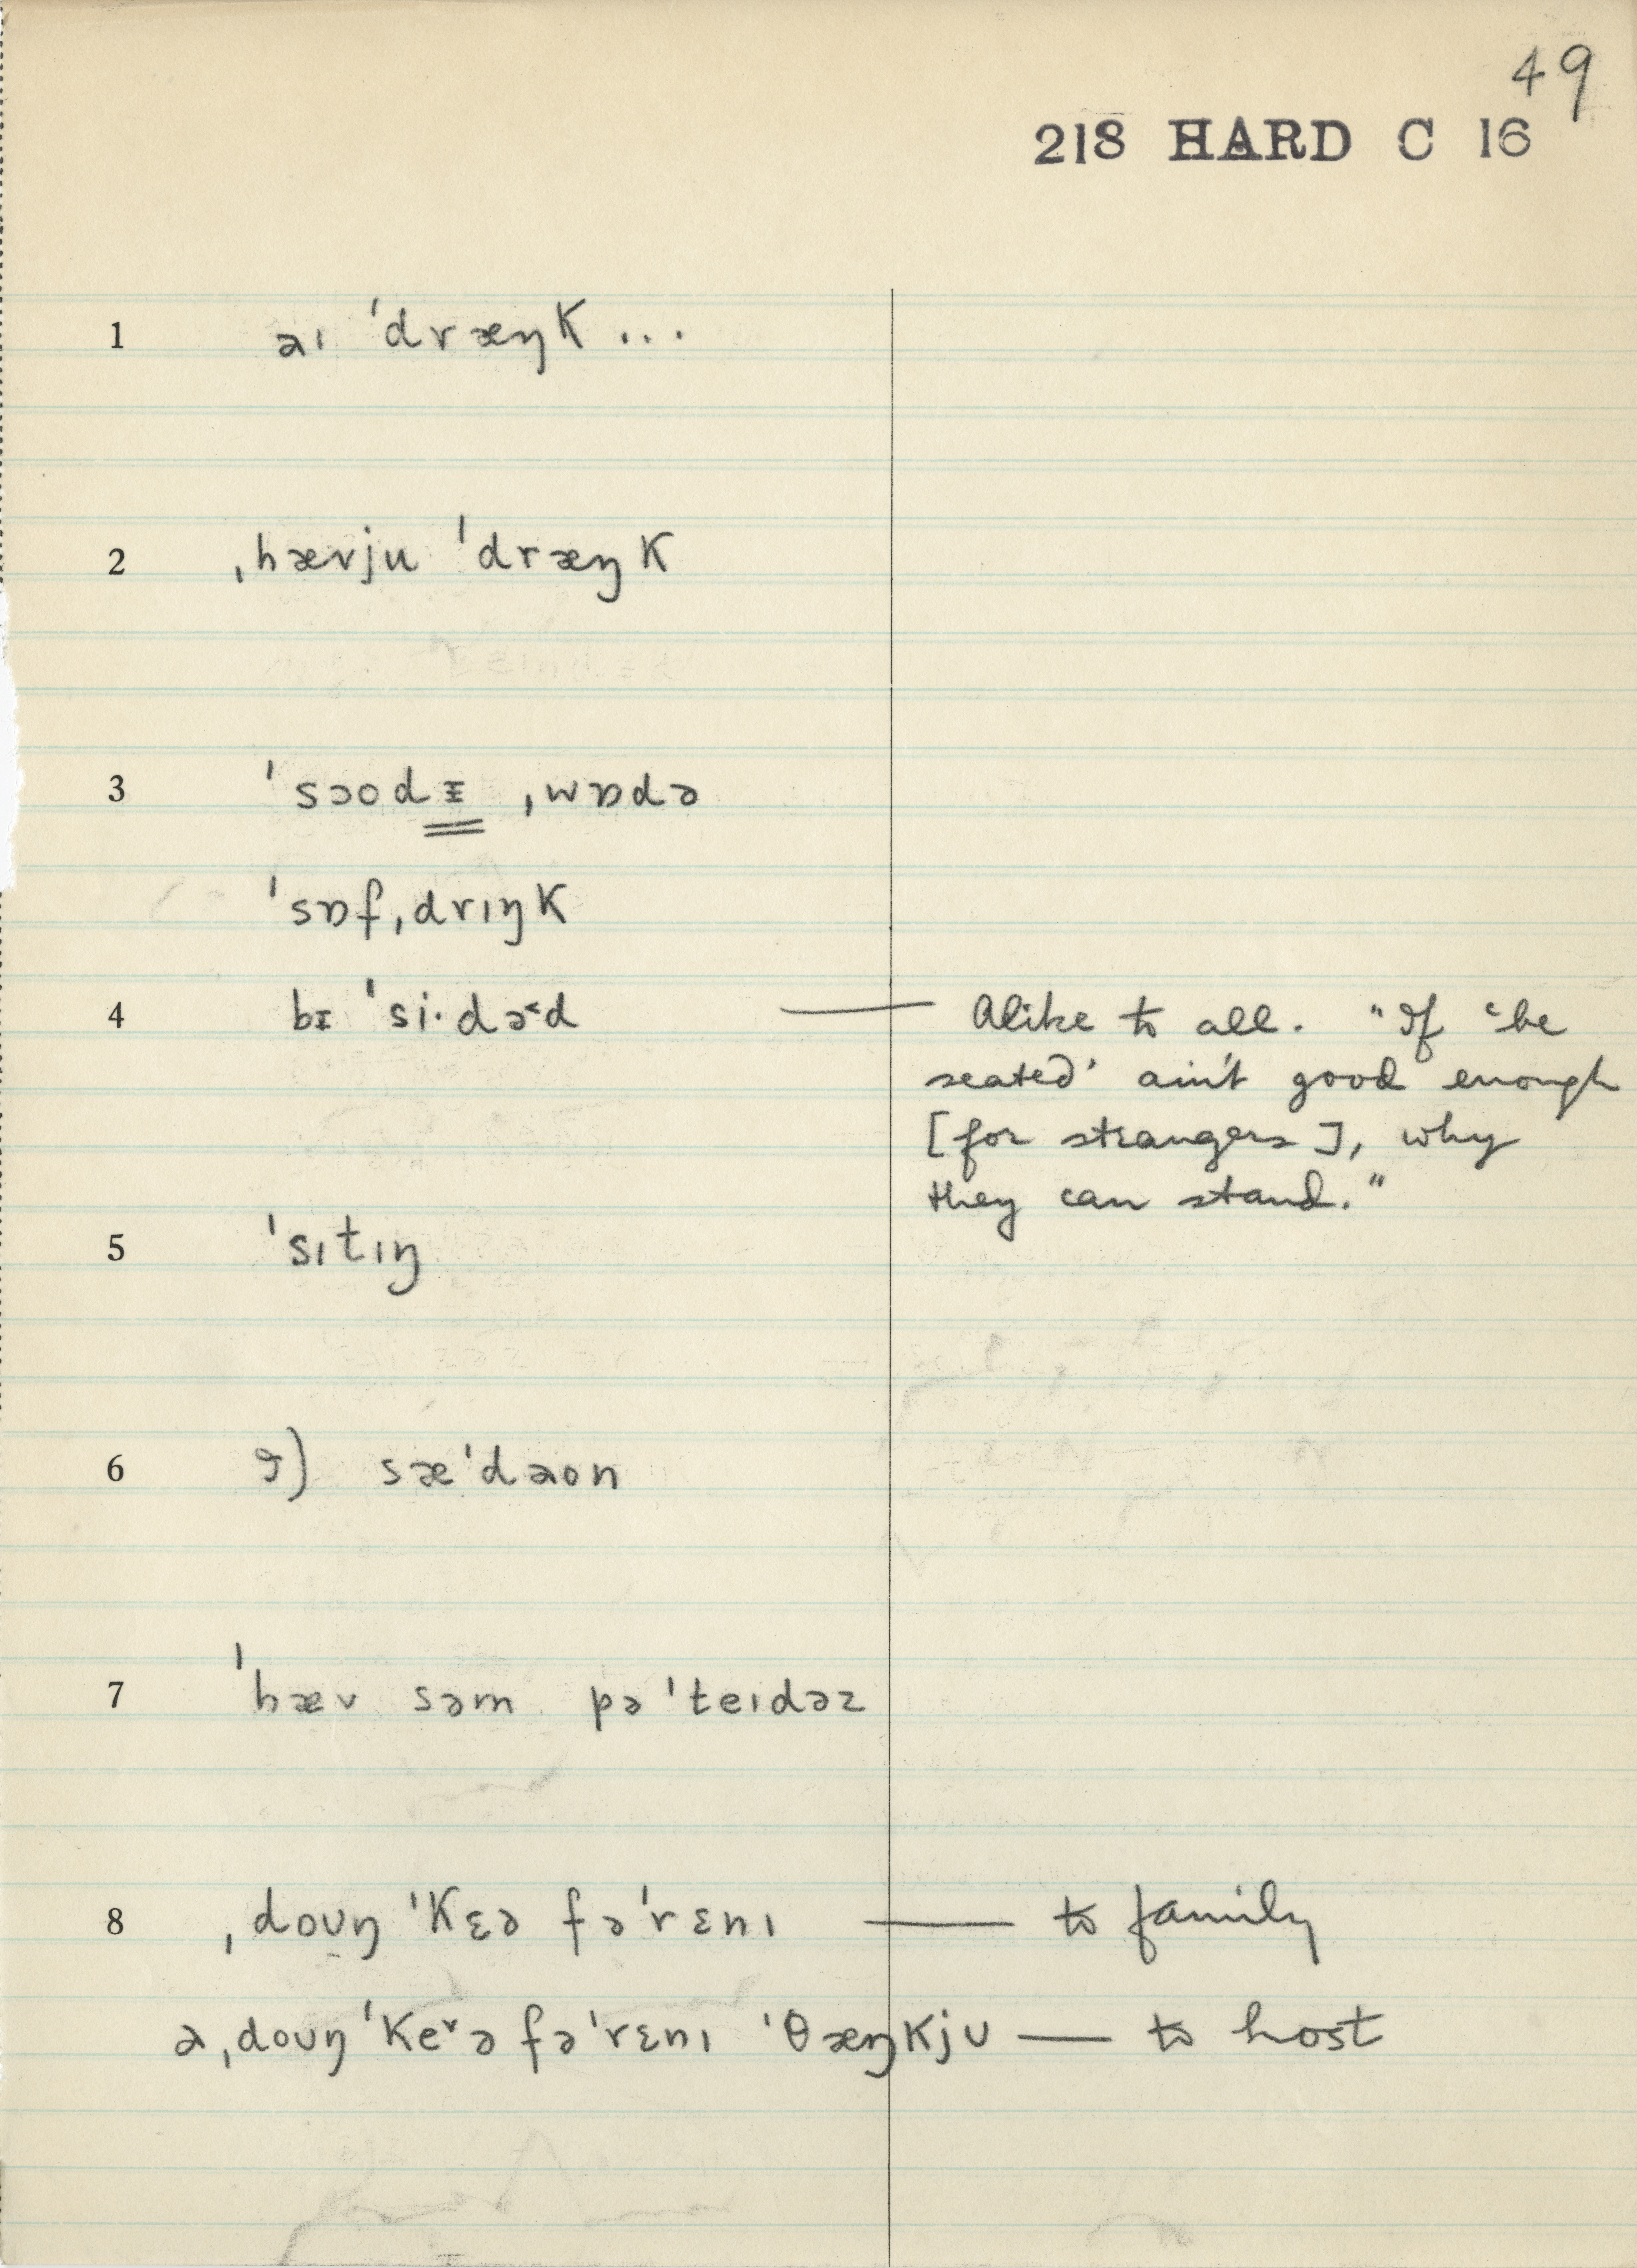 49
218 HARD C 16
1 aɪ ˈdræŋk ...
2 ˌhævju ˈdræŋk
3 ˈsɔodᵻ ˌwɒdə
ˈsɒfˌdrɪŋk
4 bɪ ˈsi·də˂d — Alike to all. "If 'be
seated' ain't good enough
[for strangers], why
they can stand."
5 ˈsɪtɪŋ
6 ɡ) sæˈdaon
7 ˈhæv səm pəˈteɪdəz
8 ˌdoʊŋ ˈkɛə fəˈrɛnɪ — to family
aˌdoʊŋ ˈke˅ə fəˈrɛnɪ ˈθæŋkjʊ — to host